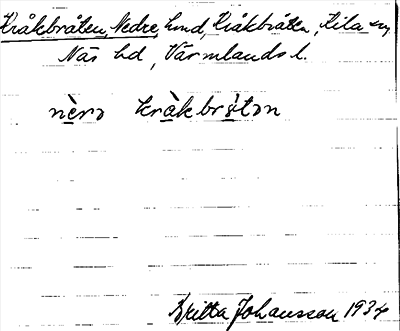 Kråkbråten, Nedre, hmd, Kråkbråten, Kila sn
Näs hd, Värmlands l.
nèrə kràkbrɑ́tən
Britta Johansson 1934